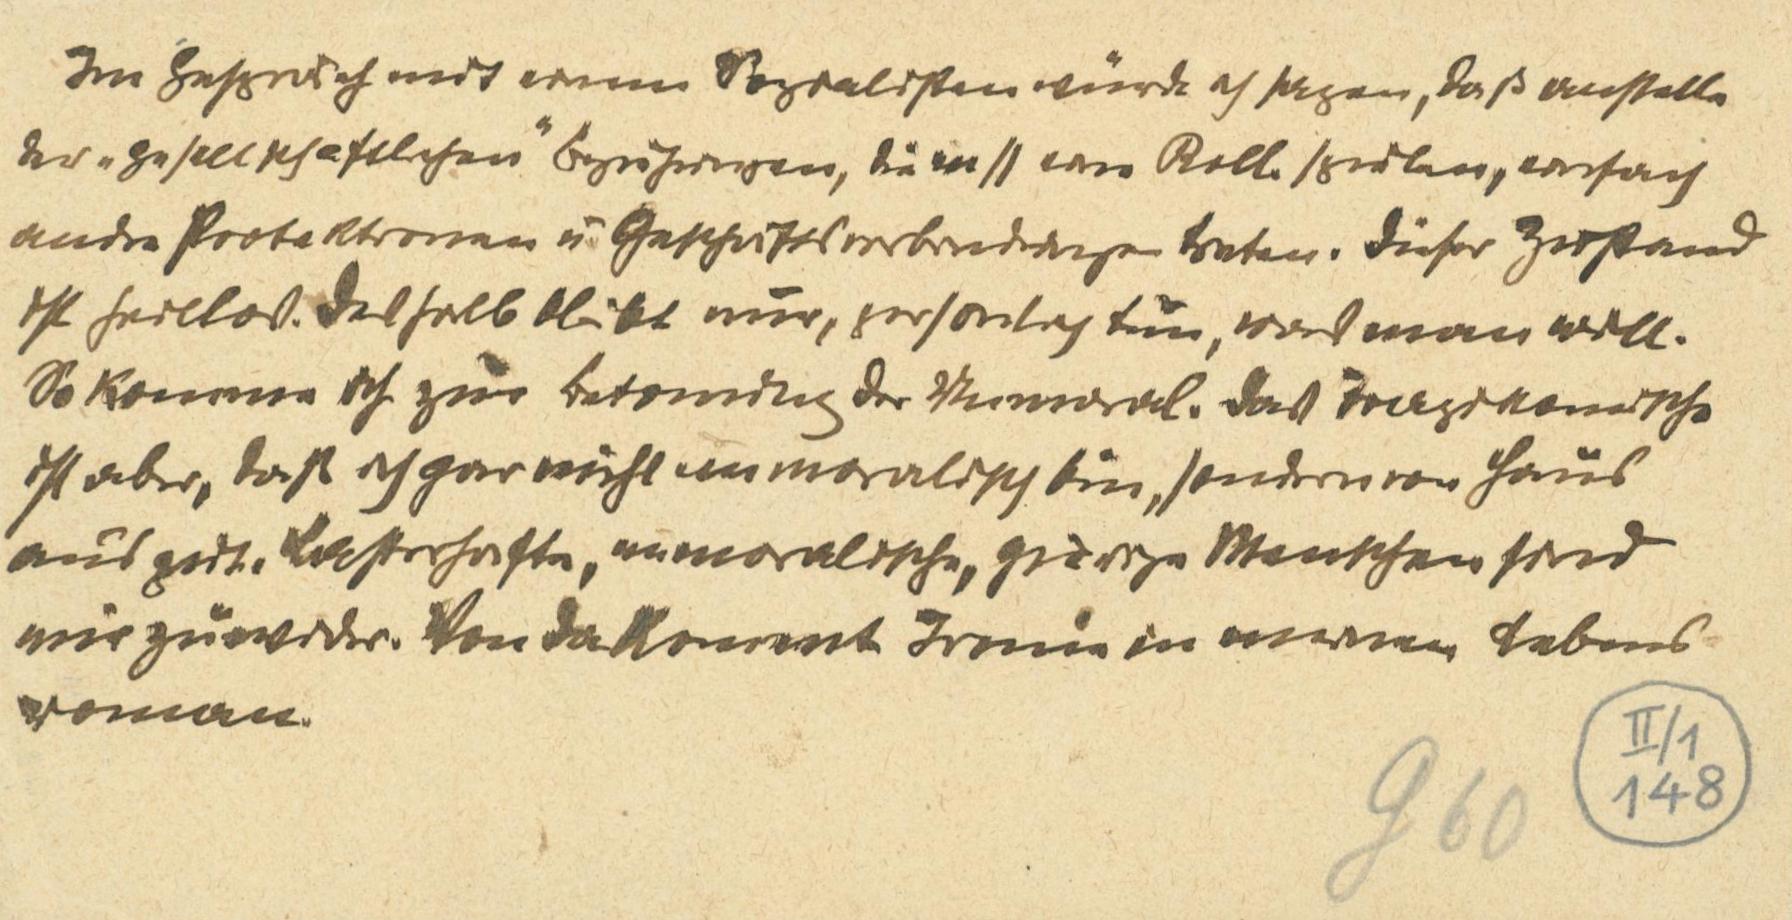 Im Gespräch mit einem Sozialisten würde ich sagen, daß anstelle
der „gesellschaftlichen“ Beziehungen, die eine Rolle spielen, einfach
andre Protektionen u Geschäftsverbindungen treten. Dieser Zustand
ist heillos. Deshalb bleibt nur, persönlich tun, was man will.
So komme ich zur Betonung der Unmoral. Das Tragikomische
ist aber, daß ich gar nicht unmoralisch bin, sondern von Haus
aus gut. Lasterhafte, unmoralische, gierige Menschen sind
mir zuwider. Von da kommt Ironie in meinen Lebens
roman.
II/1
148
G 60